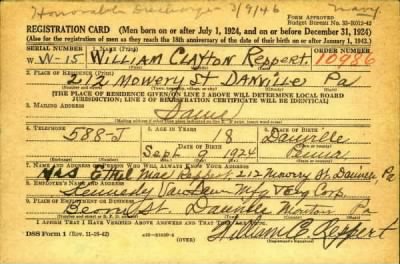 Honorable Discharge 3/9/46 Navy
FORM APPROVED
Budget Bureau No. 33-R012-42
REGISTRATION CARD (Men born on or after July 1, 1924, and on or before December 31, 1924)
(Also for the registration of men as they reach the 18th anniversary of the date of their birth on or after January 1, 1943.)
SERIAL NUMBER 1. NAME (Print) ORDER NUMBER
W. W-15 WILLIAM CLAYTON REPPERT. 10986
(First) (Middle) (Last)
2. PLACE OF RESIDENCE (Print)
212 MOWERY ST DANVILLE Pa
[THE PLACE OF RESIDENCE GIVEN ON LINE 2 ABOVE WILL DETERMINE LOCAL BOARD
JURISDICTION; LINE 2 OF REGISTRATION CERTIFICATE WILL BE IDENTICAL]
3. MAILING ADDRESS
Same
4. TELEPHONE 5. AGE IN YEARS 6. PLACE OF BIRTH
588-J 18 Danville
DATE OF BIRTH
Sept 9 1924 Penna
7. NAME AND ADDRESS OF PERSON WHO WILL ALWAYS KNOW YOUR ADDRESS
Mrs Ethel Mae Reppert, 212 Mowry St. Danville, Pa
8. EMPLOYER'S NAME AND ADDRESS
Kennedy Van Saun Mfg & Eng Corp.
9. PLACE OF EMPLOYMENT OR BUSINESS
St. Danville Montour Pa
I AFFIRM THAT I HAVE VERIFIED ABOVE ANSWERS AND THAT THEY ARE TRUE.
DSS Form 1 (Rev. 11-16-42)
William C Reppert
(Registrant's signature)